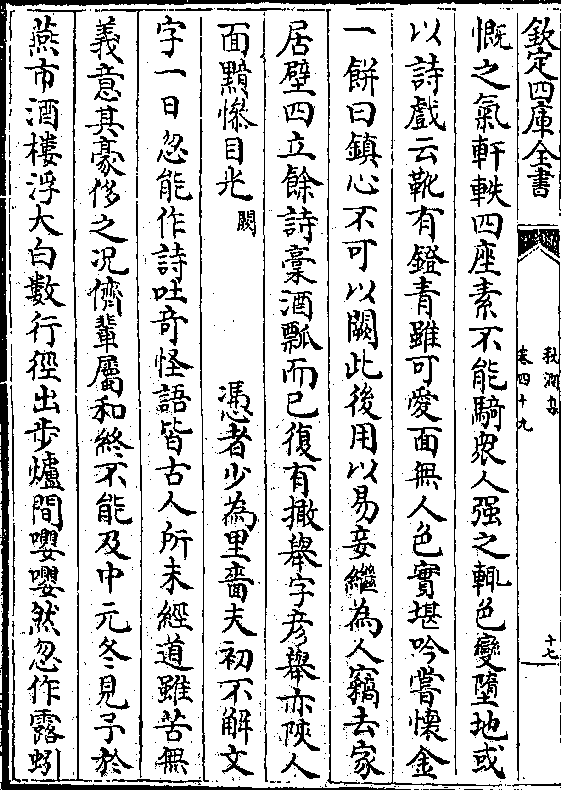 欽定四庫全書
秋澗集
卷四十九
十七
慨之氣軒軼四座素不能騎衆人强之輒色變墮地或
以詩戲云靴有鐙青雖可愛面無人色實堪吟嘗懷金
一餅曰鎮心不可以闕此後用以易妾繼為人竊去家
居壁四立餘詩藁酒瓢而已復有撖舉字彦舉亦陜人
面黯慘目光闕憑者少為里嗇夫初不解文
字一日忽能作詩吐奇怪語皆古人所未經道雖苦無
義意其豪侈之况儕輩屬和終不能及中元冬見予於
燕市酒樓浮大白數行徑出步爐間嚶嚶然忽作露蚓